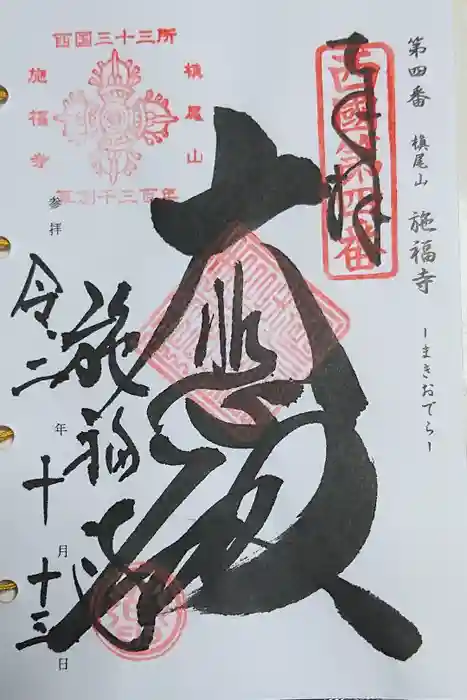 第四番 槇尾山 施福寺 ーまきおでらー
奉拝
西國第四番
大悲殿
西国三十三所
槇尾山
施福寺
草創千三百年
参拝
施福寺
令二年十月十三日